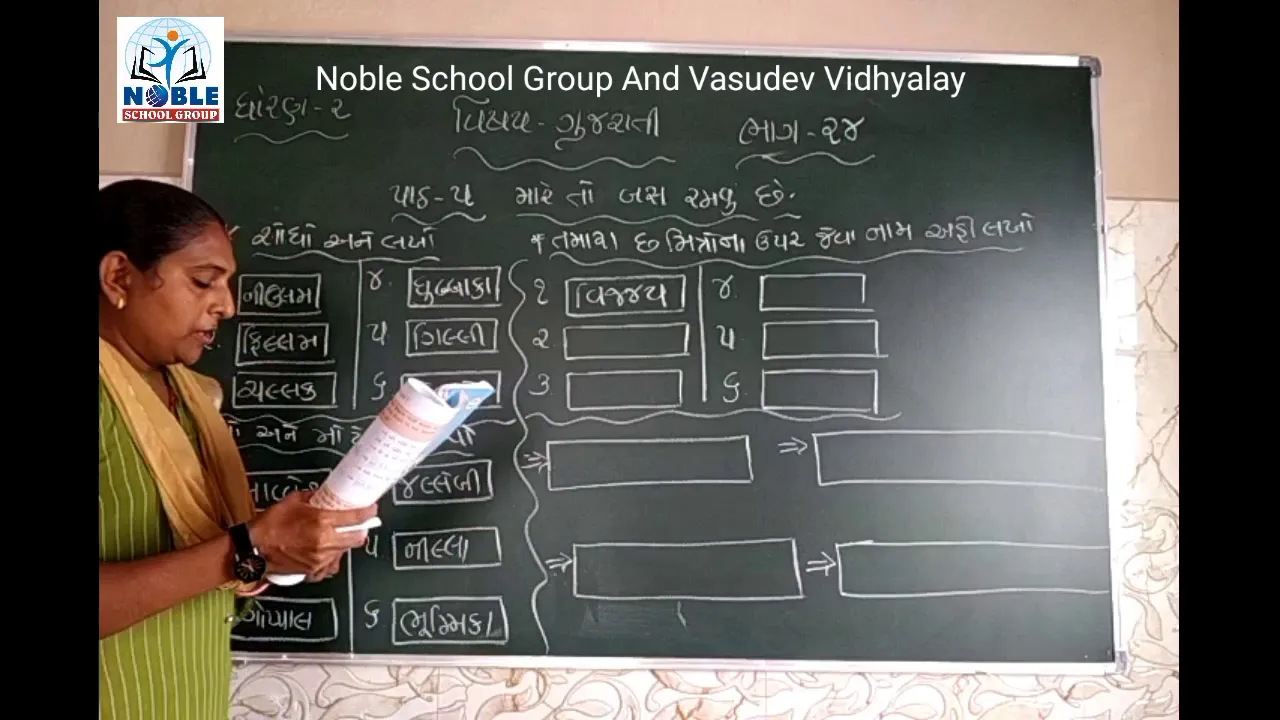 NOBLE
SCHOOL GROUP
Noble School Group And Vasudev Vidhyalay
ધોરણ-૨ વિષય-ગુજરાતી ભાગ-૨૪
પાઠ-૫ મારે તો બસ રમવું છે.
શોધો અને લખો
નીલ્લમ
ફિલ્લમ
ચલ્લક
૪. ઘુબ્બાકા
૫ ગિલ્લી
૬
* તમારા છ મિત્રોના ઉપર જેવા નામ અહીં લખો
૧ વિજ્જય
૨
૩
૪
૫
૬
અને મો
ગોપ્પાલ
જલ્લેબી
૫ નીલ્લા
૬ ભૂમ્મિકા